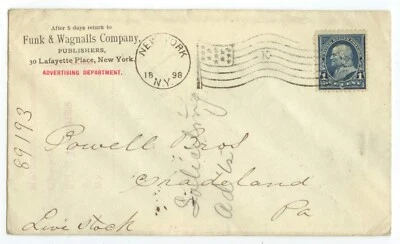 After 5 days return to
Funk & Wagnalls Company,
PUBLISHERS,
30 Lafayette Place, New York.
ADVERTISING DEPARTMENT.
NEW YORK
18 98
N.Y.
1 1
89193
Powell Bros
Shadeland
Pa
Live stock
Soliciting
adv's